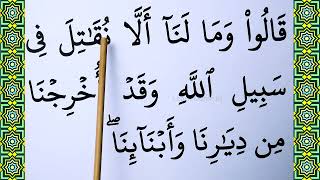 قَالُوا۟ وَمَا لَنَآ أَلَّا نُقَـٰتِلَ فِى
سَبِيلِ ٱللَّهِ وَقَدْ أُخْرِجْنَا
مِن دِيَـٰرِنَا وَأَبْنَآئِنَا ۖ